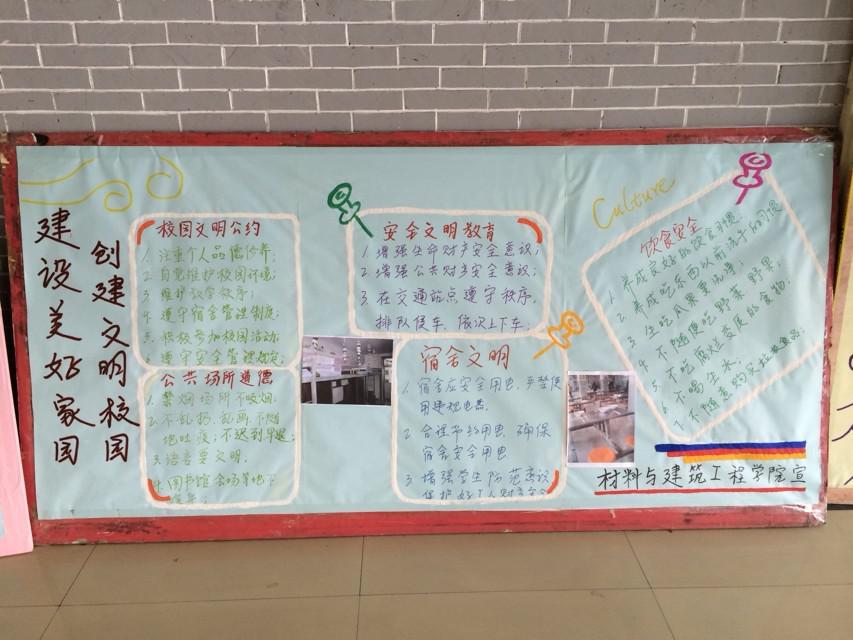 建设美好家园
创建文明校园
校园文明公约
1. 注重个人品德修养;
2. 自觉维护校园环境;
3. 维护教学秩序;
4. 遵守宿舍管理制度;
5. 积极参加校园活动;
6. 遵守安全管理规定;
公共场所道德
1. 禁烟场所不吸烟.
2. 不乱扔、乱画、不随
地吐痰; 不迟到早退;
3. 语言要文明.
4. 图书馆会场等地
安全文明教育
1. 增强生命财产安全意识;
2. 增强公共财产安全意识;
3. 在交通站点遵守秩序,
排队侯车、依次上下车;
宿舍文明
1. 宿舍应安全用电, 严禁使
用违规电器
2. 合理节约用电, 确保
宿舍安全用电
3. 增强学生防范意识
保护好个人财产安全
Culture
饮食安全
1. 养成良好的饮食习惯
2. 养成吃东西以前洗手的习惯
3. 生吃瓜果要洗净
4. 不随便吃野菜、野果;
5. 不吃腐烂变质的食物;
6. 不喝生水;
7. 不随意购买垃圾食品;
材料与建筑工程学院宣